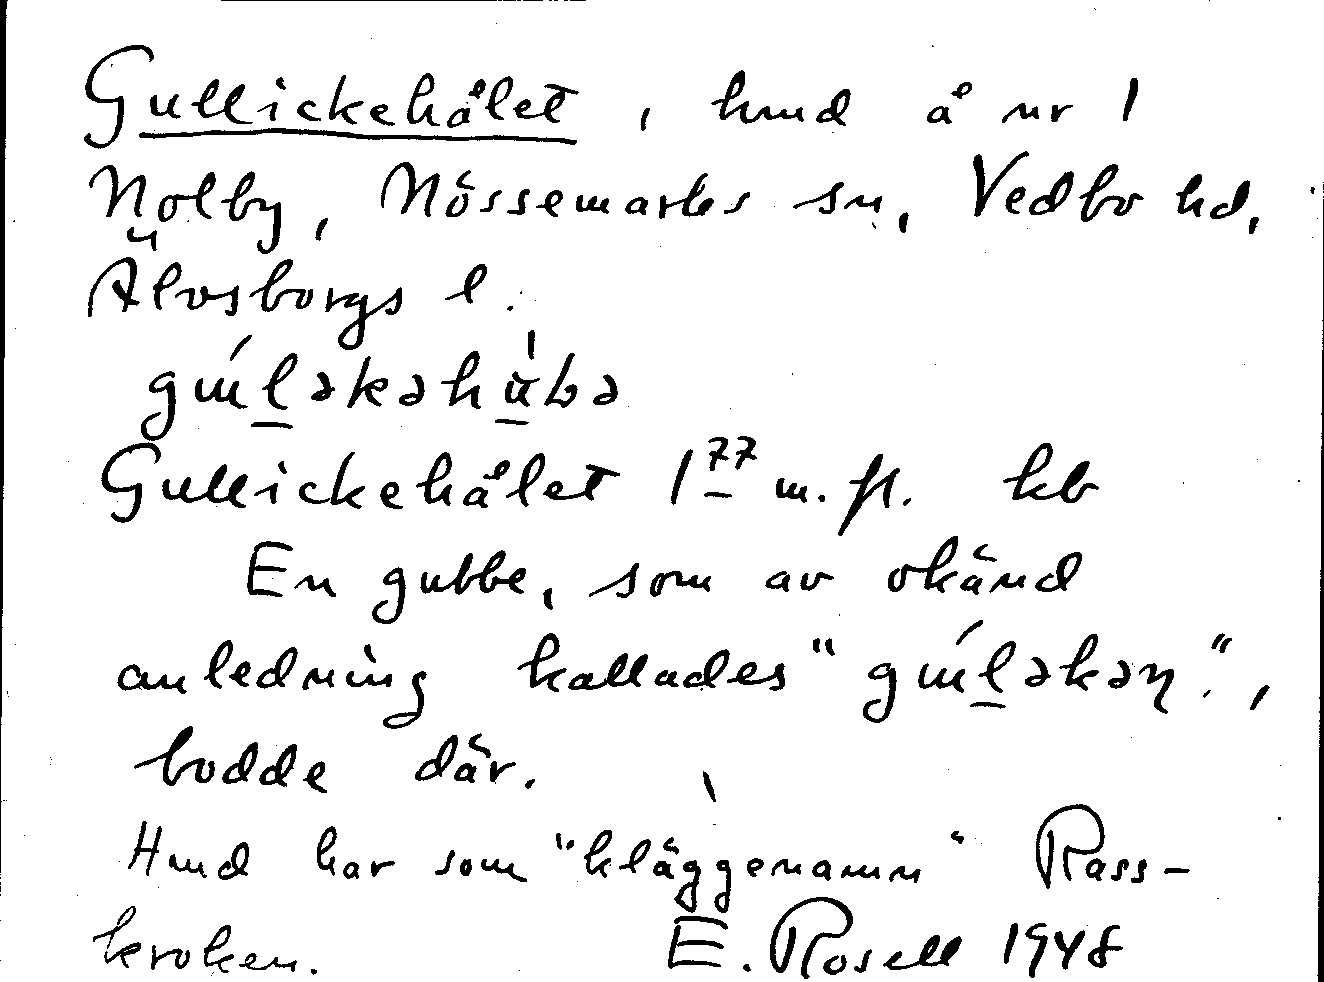 Gullickehålet, hmd å nr 1
Nolby, Nössemarks sn, Vedbo hd,
Älvsborgs l.
Gullickehålet 1⁷⁷ m. fl. kb
En gubbe, som av okänd
anledning kallades "
bodde där.
Hmd har som "kläggenamn" Rass-
kroken. E. Rosell 1948